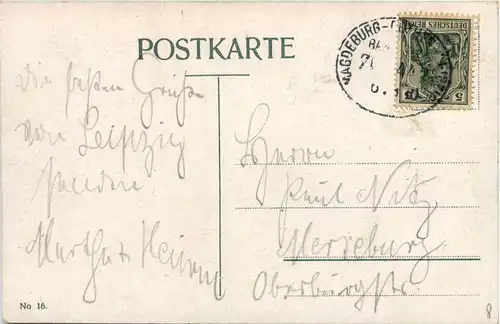 POSTKARTE
MAGDEBURG-
DEUTSCHES REICH
5 5
Die besten Grüße
von Leipzig
senden
Martha
Herrn
Paul Nitz
Merseburg
Oberburgstr.
No 16.
8